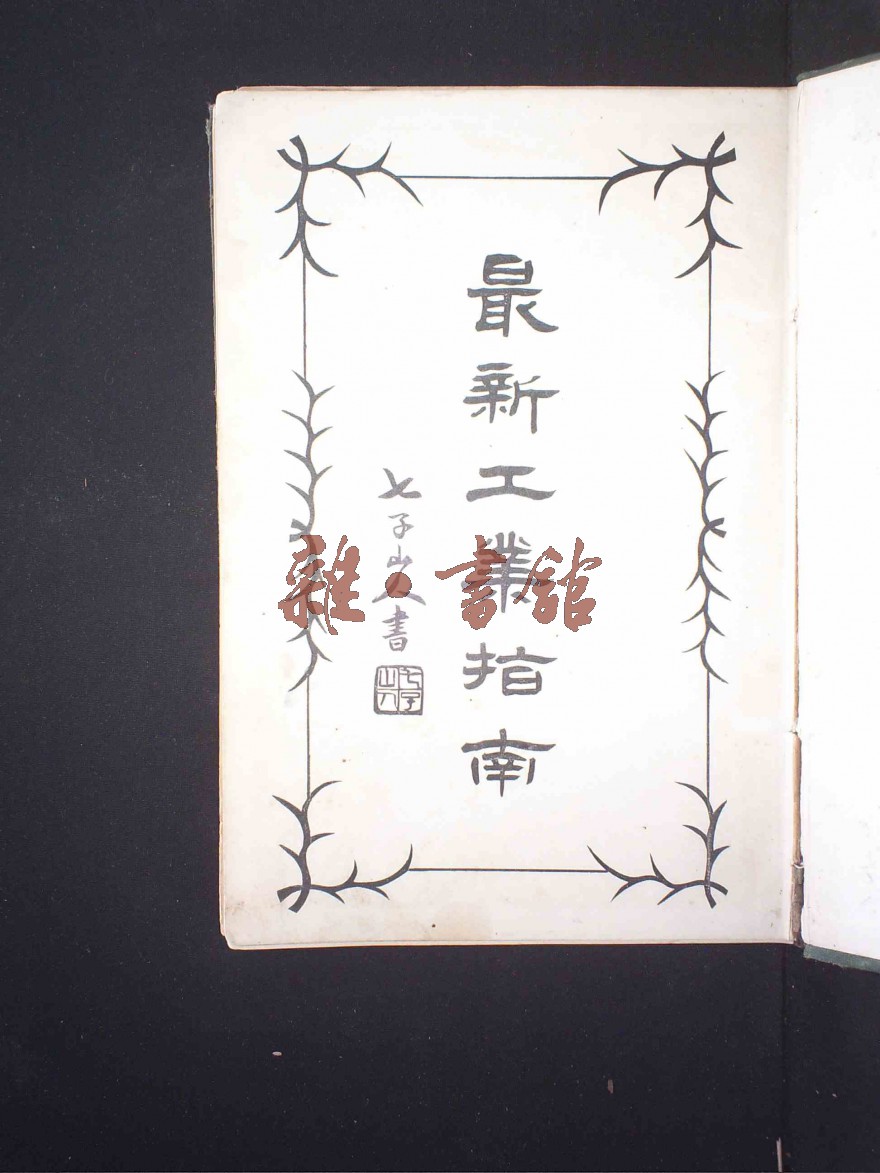 最新工業指南
七子山人書
七子山人
雜·書館